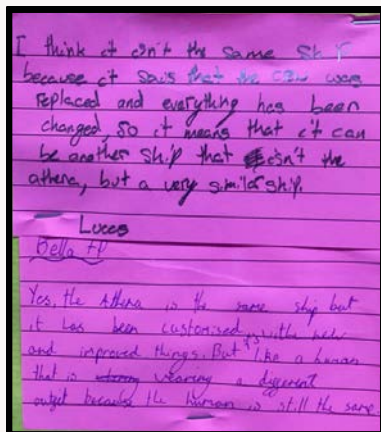 I think it isn't the same ship
because it sais that the crew was
replaced and everything has been
changed, so it means that it can
be another ship that isn't the
athena, but a very similar ship.
Lucas
Bella FP
Yes, the Athena is the same ship but
it has been customised with new
and improved things. But it's like a human
that is wearing a different
outfit because the human is still the same